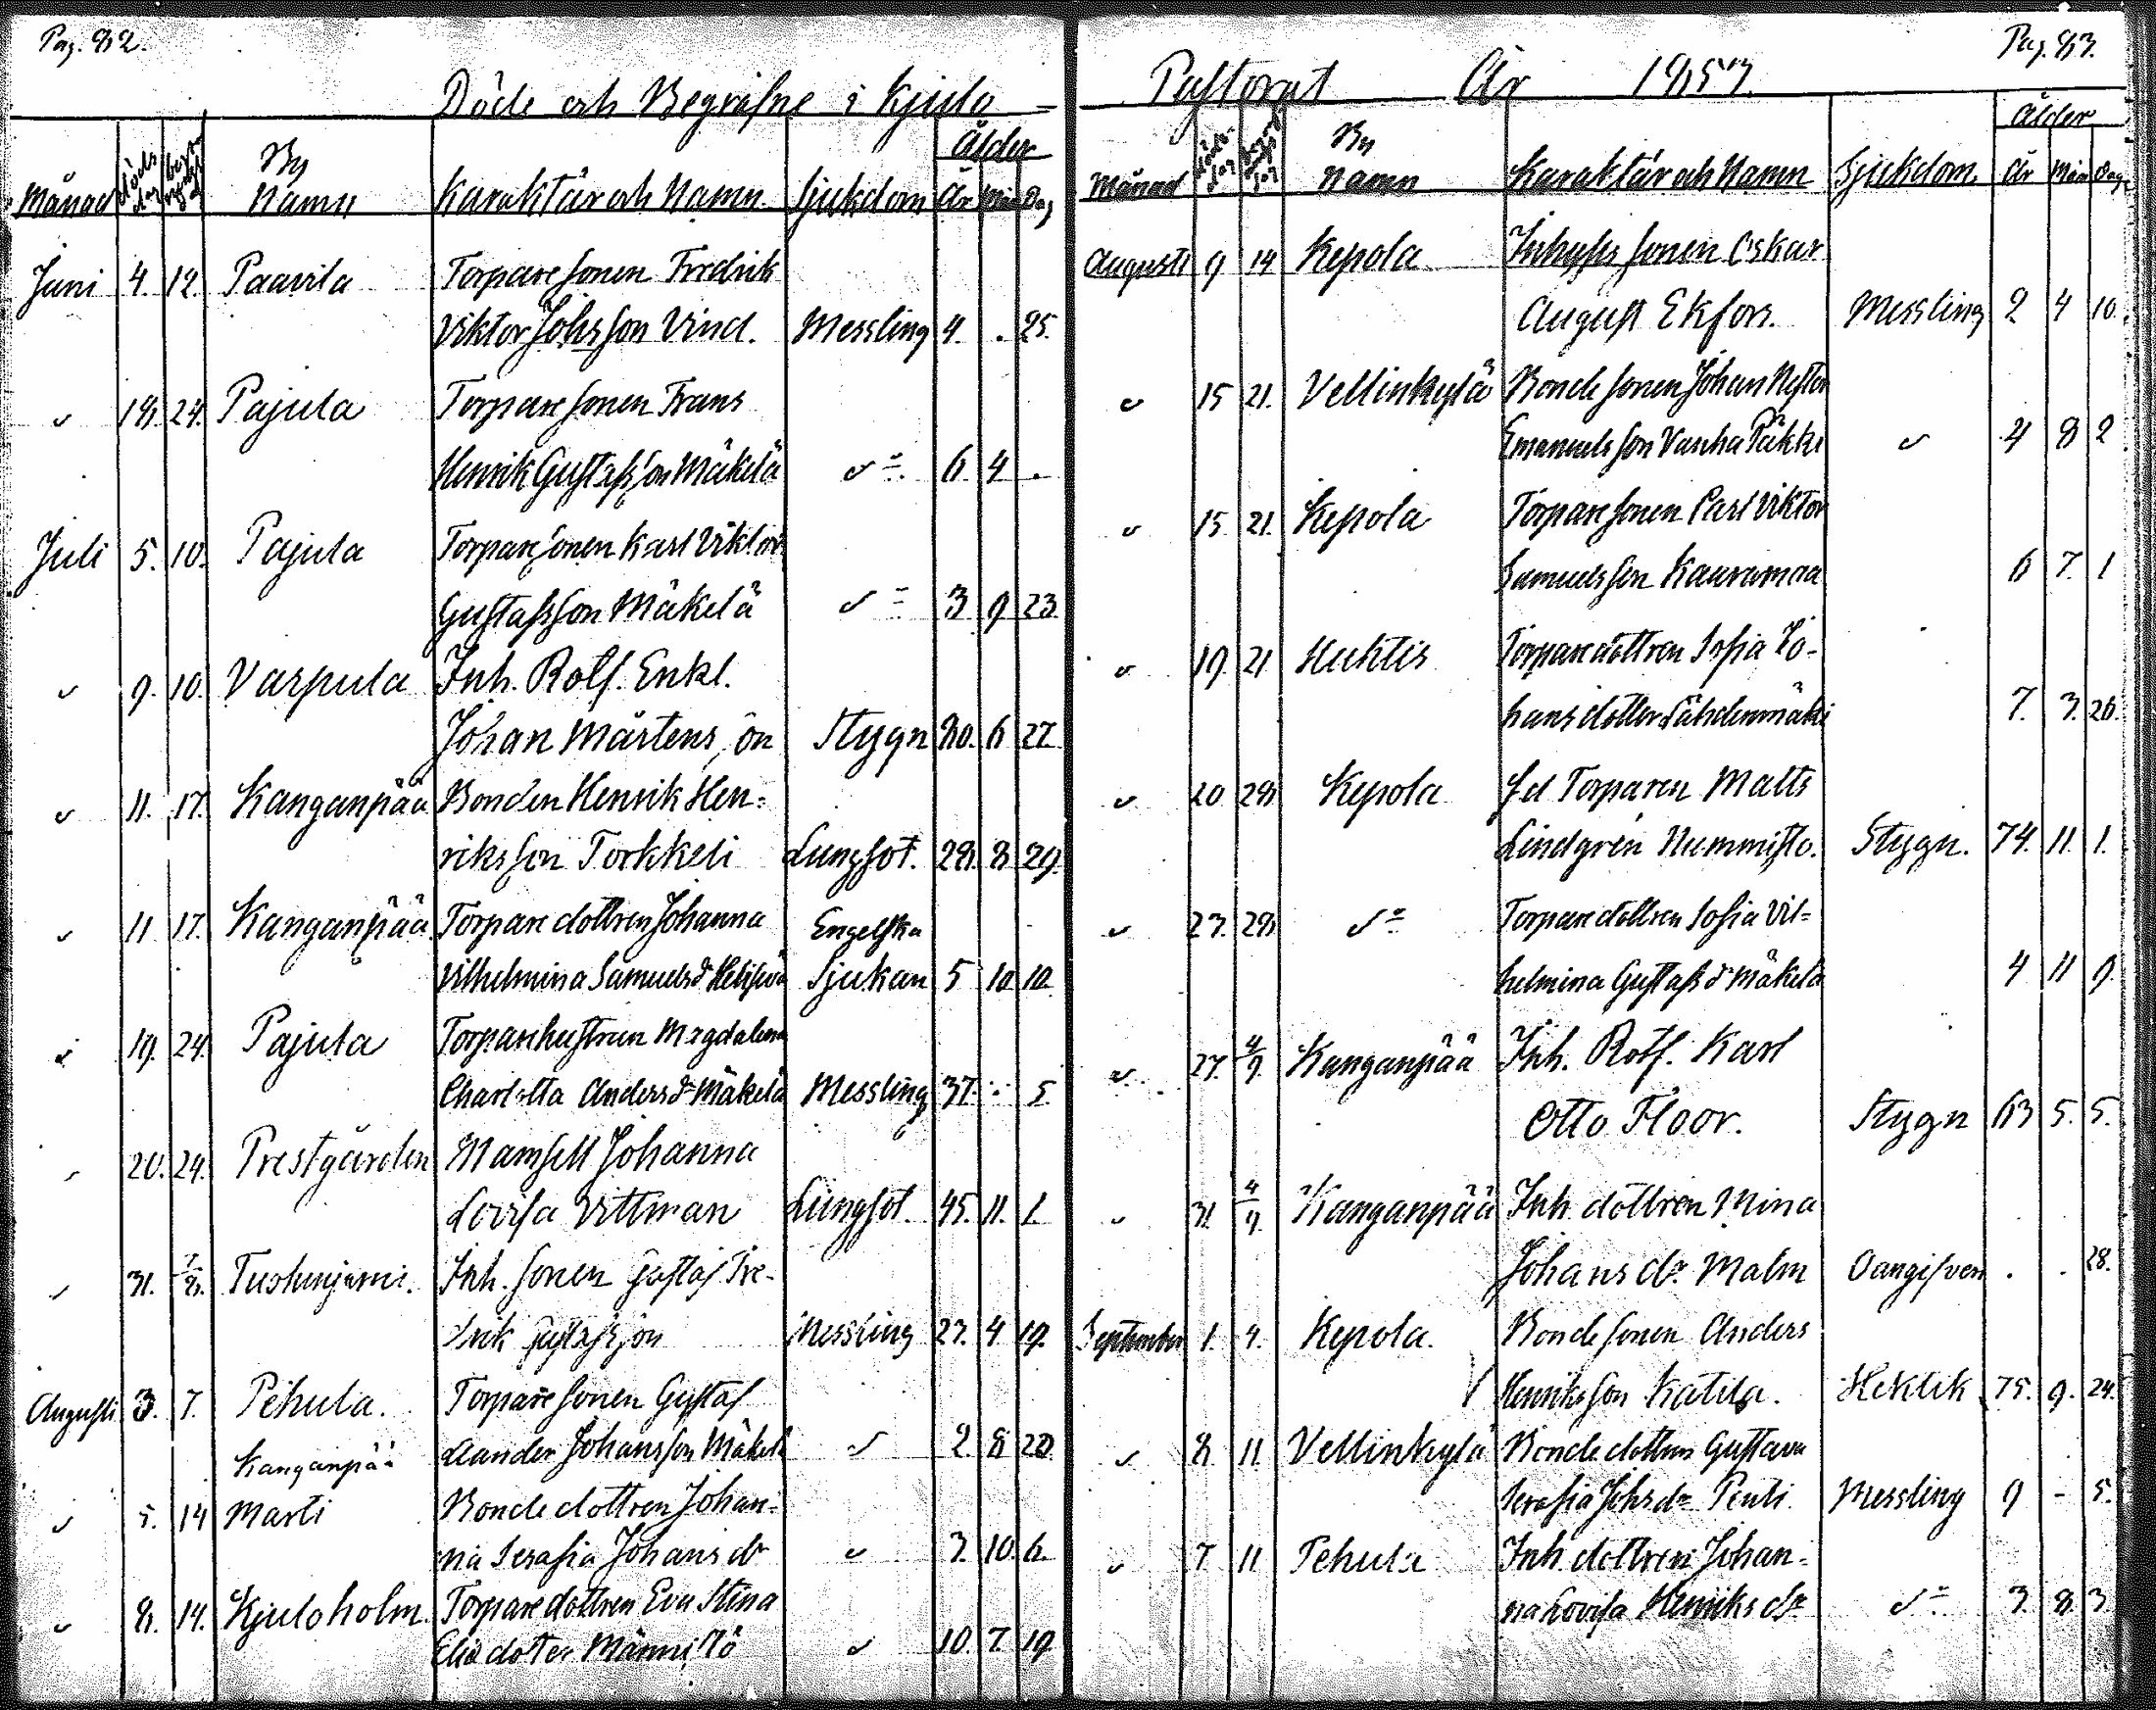 Pag. 82.
Döde och Begrafne i Kjulo
Månad döds dag begr. By Namn Karaktär och Namn Sjukdom Ålder År Mån Dag
Juni 4. 12. Paavila Torpare sonen Fredrik
Viktor Johsson Vind. Messling 4. . 25.
" 18. 24. Pajula Torpare sonen Frans
Henrik Gustafsson Mäkelä " 6 4 .
Juli 5. 10. Pajula Torpare sonen Karl Viktor
Gustafsson Mäkelä " 3 9 23.
" 9. 10. Varpula Inh. Rotf. Enkl.
Johan Mårtensson Stygn 80. 6 27.
" 11. 17. Kanganpää Bonden Henrik Hen-
riksson Torkkeli Lungsot. 28. 8 29.
" 11 17. Kanganpää Torpare dottren Johanna Engelska
Vilhelmina Samuelsdr Sjukan 5 10 10.
" 19. 24. Pajula Torpare hustrun Magdalena
Charlotta Andersdr Mäkelä Messling 37. . 5
" 20. 24. Prestgården Mamsell Johanna
Lovisa Vittman Lungsot. 45. 11. 1.
" 31. 7/8. Inh. sonen Gustaf Fre-
drik Gustafsson Messling 27. 4 19.
Augusti 3. 7. Pehula. Torpare sonen Gustaf
Kanganpää Johansson Mäkelä " 2 8 20
" 5. 14 Marti Bonde dottren Johan-
na Serafia Johans dr " 3. 10. 6.
" 8. 14. Kjuloholm. Torpare dottren Eva Stina
Elie doter " 10. 7. 19
Pag. 83.
Pastorat År 1857.
Månad döds dag By Namn Karaktär och Namn Sjukdom Ålder År Mån Dag
Augusti 9 14 Kepola Inhyses sonen Oskar
August Ekfors. Messling 2 4 10.
" 15 21. Vellinkylä Bonde sonen Johan Nestor
Emanuelsson Vanha Päkki " 4 8 2
" 15. 21. Kepola Torpare sonen Carl Viktor
Samuelsson Kauramaa 6 7. 1
" 19. 21 Huhtis Torpare dottren Sofia Jo-
hans dotter Lähdenmäki 7. 3. 26.
" 20 28 Kepola f.d Torparen Matts
Lindgren Nummisto. Stygn. 74. 11 1.
" 27. 28 " Torpare dottren Sofia Vil-
helmina Gustafsdr Mäkelä 4 11 9.
" 27. 4/9. Kanganpää Inh. Rotf. Karl
Otto Floor. Stygn 63 5. 5.
" 31. 4/9. Kanganpää Inh. dottren Mina
Johans dr. Malm Oangifven . . 28.
September 1. 4. Kepola. Bonde sonen Anders
Henriksson Katila. Hektik 75. 9. 24.
" 8 11 Vellinkylä Bonde dottren Gustava
Serafia Johsdr Penti. Messling 9 - 5.
" 7 11 Pehula Inh dottren Johan-
na Lovisa Henriks dr " 3. 8 3